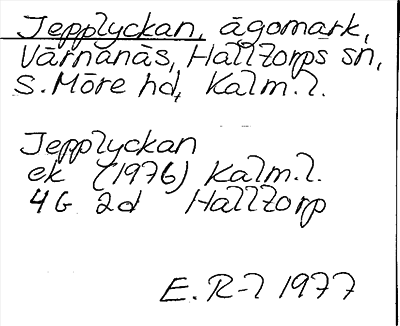 Jepplyckan, ägomark,
Värnanäs, Halltorps sn,
S. Möre hd, Kalm. l.
Jepplyckan
ek (1976) Kalm. l.
4G 2d Halltorp
E. R-l 1977